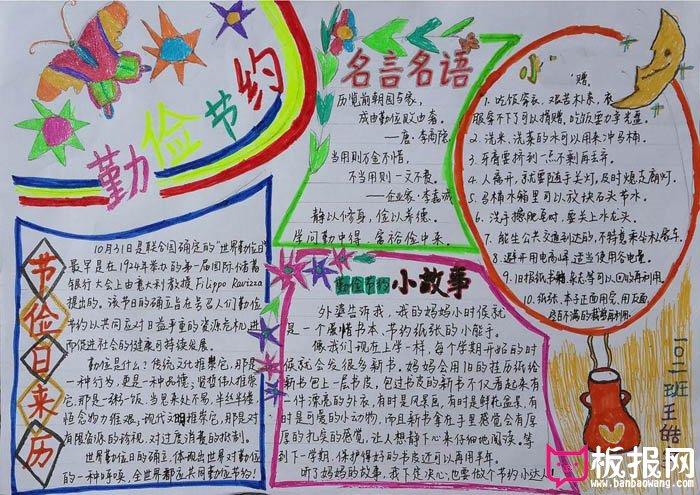 勤俭节约
节俭日来历
10月31日是联合国确定的"世界勤俭日"
最早是在1924年举办的第一届国际储蓄
银行大会上由意大利教授Filippo Ravizza
提出的。该节日的确立旨在号召人们勤俭
节约以共同应对日益严重的资源危机,进
而促进社会的健康可持续发展。
勤俭是什么?传统文化推崇它,那是
一种行为,更是一种品德;贤哲伟人推崇
它,那是一粥一饭,当思来处不易,半丝半缕,
恒念物力维艰;现代文明推崇它,那是对
有限资源的珍视,对过度消费的抵制。
世界勤俭日的确立,体现出世界对勤俭
的一种呼唤,全世界都应共同勤俭节约!
名言名语
历览前朝国与家,
成由勤俭败由奢。
——唐·李商隐
当用则万金不惜,
不当用则一文不费。
——企业家·李嘉诚
静以修身,俭以养德。
学问勤中得,富裕俭中来。
勤俭节约小故事
外婆告诉我,我的妈妈小时候就
是一个爱惜书本、节约纸张的小能手。
像我们现在上学一样,每个学期开始的时
候就会发很多新书。妈妈会用旧的挂历纸给
新书包上一层书皮,包过书皮的新书不仅看起来有
一件漂亮的外衣,有时是风景画,有时是鲜花盆景,有
时是可爱的小动物,而且新书拿在手里感觉会有厚
厚的扎皮的感觉,让人想静下心来仔细地阅读。等
到下一学期,保护得好的书皮还可以再用半年。
听了妈妈的故事,我下定决心,也要做个节约小达人!
小
1、吃饭穿衣,艰苦朴素,衣
服穿不下了可以捐赠,吃饭要力争光盘。
2、洗米、洗菜的水可以用来冲马桶。
3、牙膏要挤到一点不剩再丢弃。
4、人离开,就要随手关灯,及时熄走廊灯。
5、马桶水箱里可以放块石头节水。
6、洗手擦肥皂时,要关上水龙头。
7、能坐公共交通到达的,不特意乘坐私家车。
8、避开用电高峰,适当使用谷电量。
9、旧报纸书籍、杂志等可以回收再利用。
10、纸张、本子正面用完,用反面,
一〇二班王皓
板报网
www.banbaowang.com